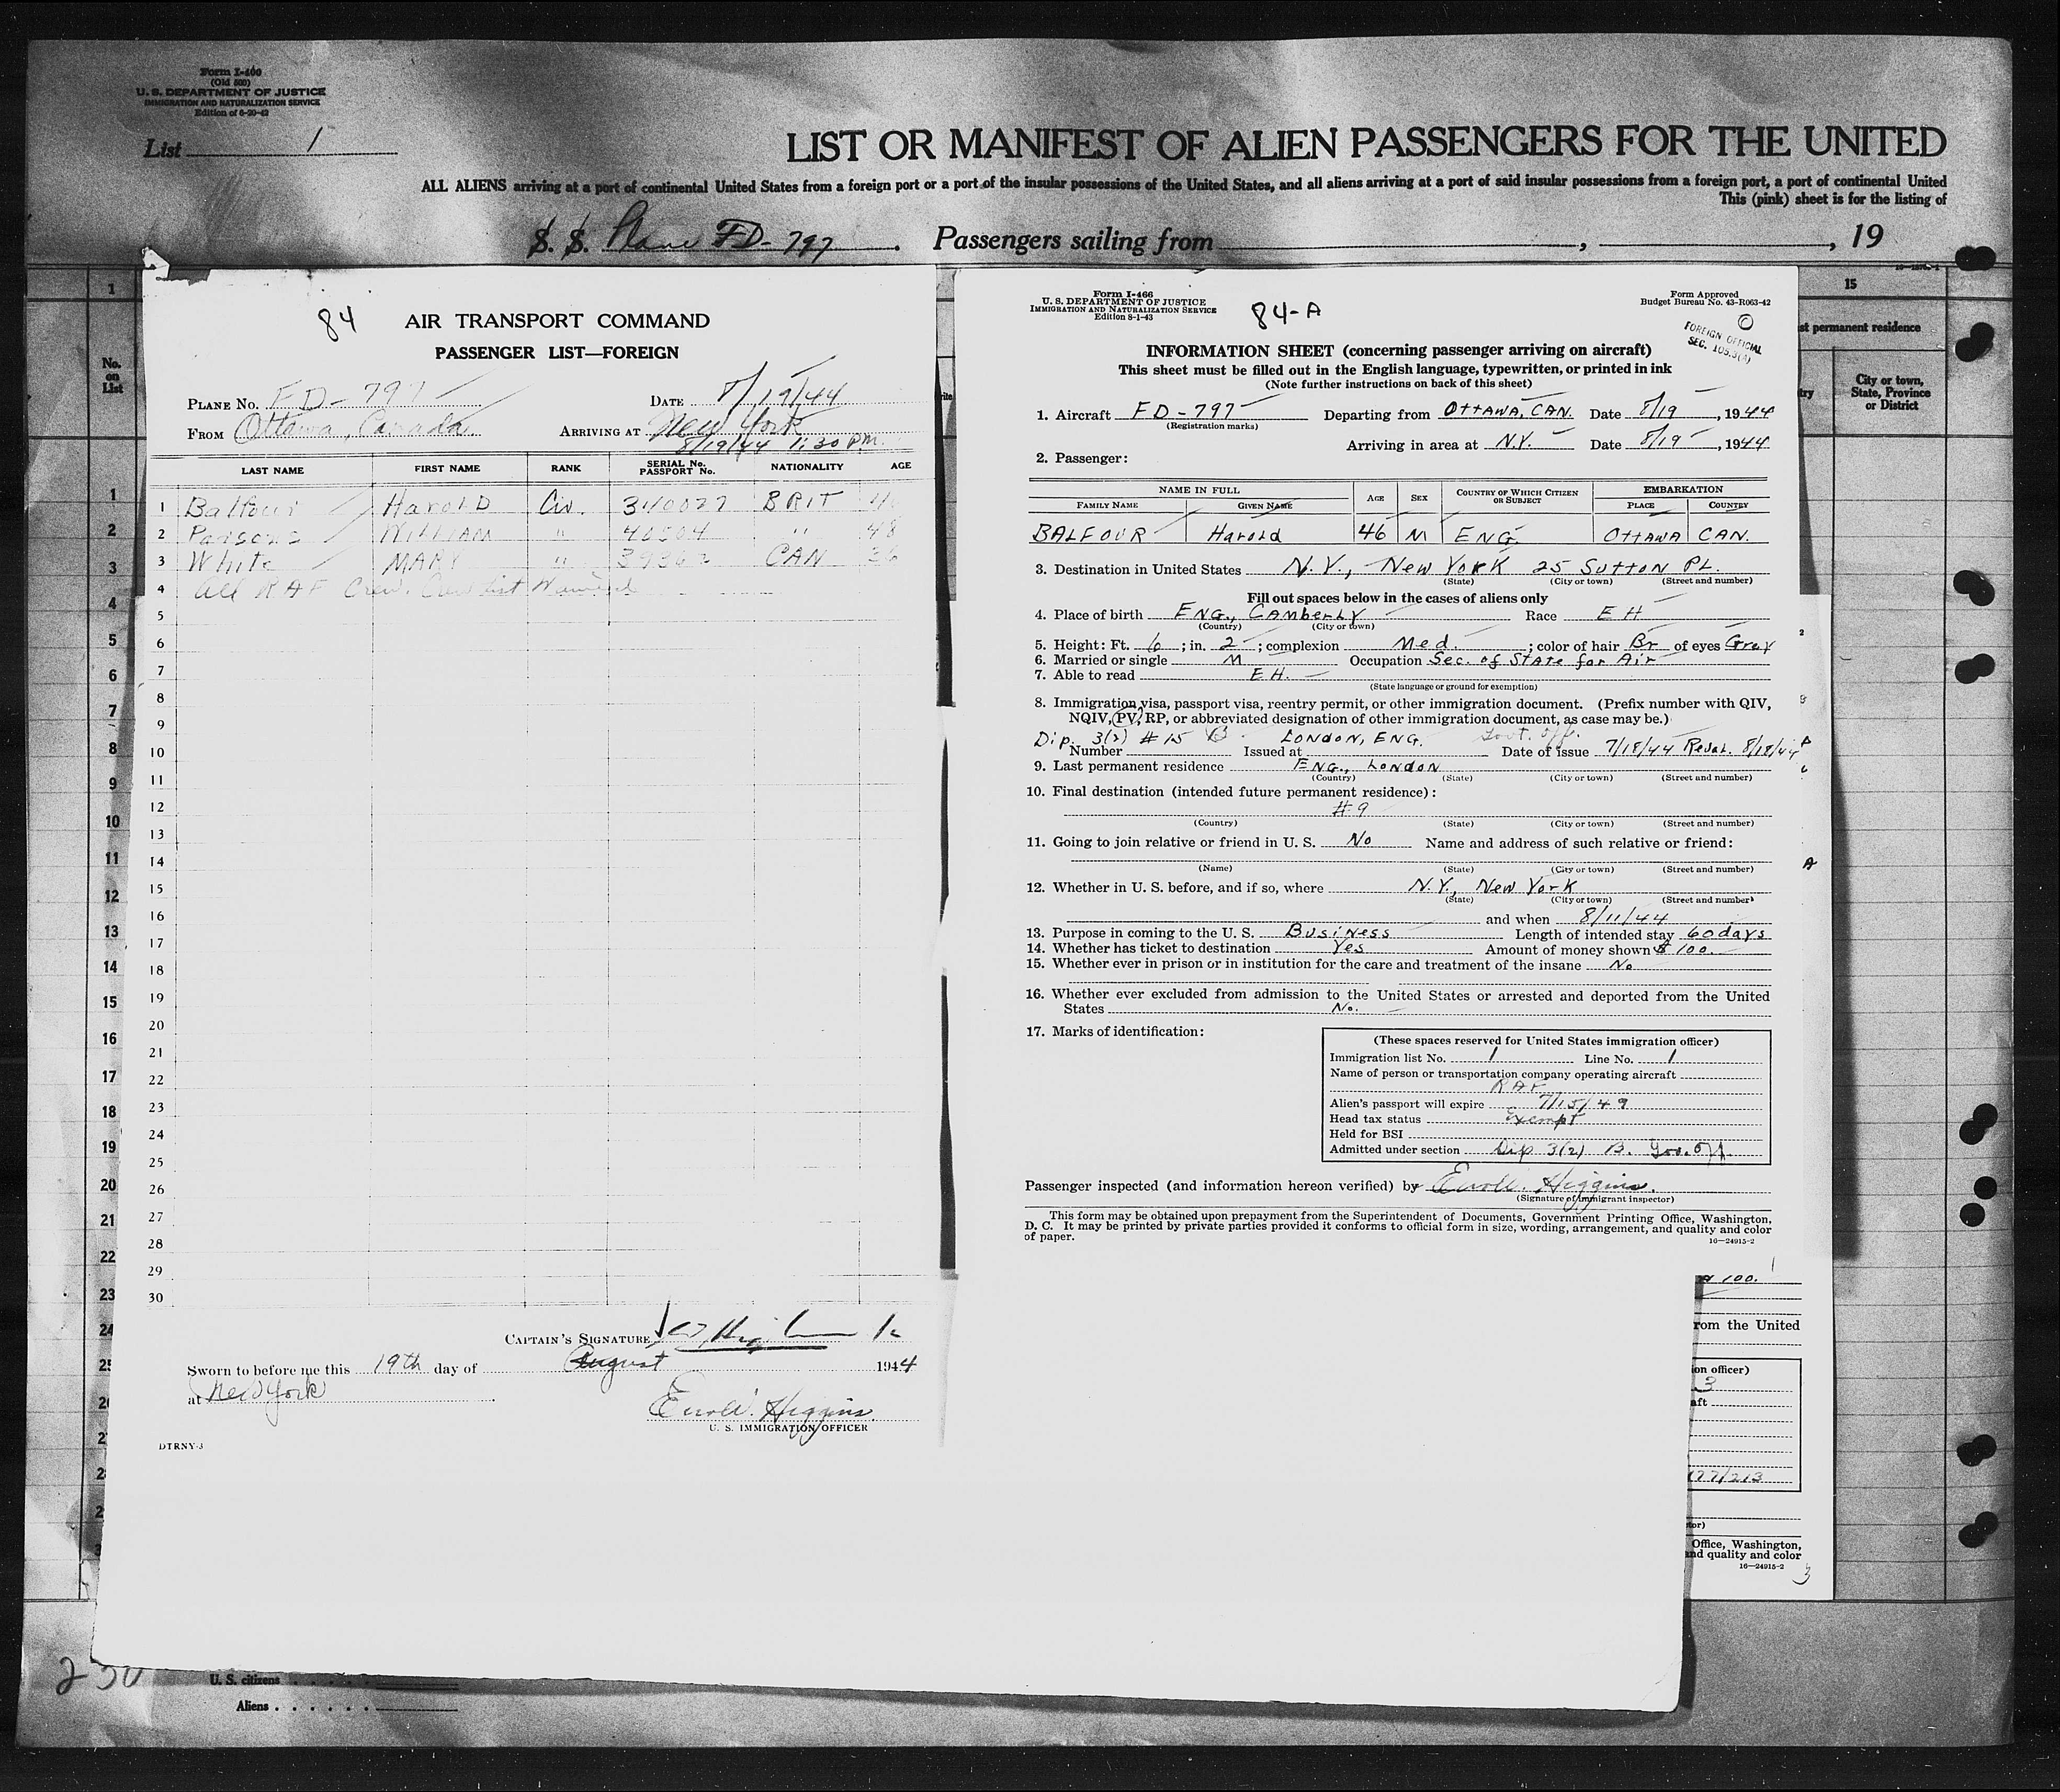 Form I-400
(Old 500)
U. S. DEPARTMENT OF JUSTICE
IMMIGRATION AND NATURALIZATION SERVICE
Edition of 6-20-42
List 1
LIST OR MANIFEST OF ALIEN PASSENGERS FOR THE UNITED
ALL ALIENS arriving at a port of continental United States from a foreign port or a port of the insular possessions of the United States, and all aliens arriving at a port of said insular possessions from a foreign port, a port of continental United
This (pink) sheet is for the listing of
S. S. Plane FD-797. Passengers sailing from , , 19
1
No. on List
1
2
3
4
5
6
7
8
9
10
11
12
13
14
15
16
17
18
19
20
21
22
23
24
25
84
AIR TRANSPORT COMMAND
PASSENGER LIST—FOREIGN
PLANE No. FD-797 DATE 8/19/44
FROM Ottawa, Canada ARRIVING AT New York
8/19/44 1:30 PM.
LAST NAME FIRST NAME RANK SERIAL No. PASSPORT No. NATIONALITY AGE
1 Balfour Harold Civ. 340027 BRIT
2 Parsons William " 40504 " 48
3 White MARY " CAN 36
4 All RAF Crew. Waived
5
6
7
8
9
10
11
12
13
14
15
16
17
18
19
20
21
22
23
24
25
26
27
28
29
30
CAPTAIN'S SIGNATURE
Sworn to before me this 19th day of August 1944
at New York
Higgins
U. S. IMMIGRATION OFFICER
DTRNY-3
U. S. citizens
Aliens
Form I-466
U. S. DEPARTMENT OF JUSTICE
IMMIGRATION AND NATURALIZATION SERVICE
Edition 8-1-43
84-A
Form Approved
Budget Bureau No. 43-R063-42
FOREIGN OFFICIAL
SEC. 105.3(4)
INFORMATION SHEET (concerning passenger arriving on aircraft)
This sheet must be filled out in the English language, typewritten, or printed in ink
(Note further instructions on back of this sheet)
1. Aircraft FD-797 Departing from OTTAWA, CAN. Date 8/19, 1944
(Registration marks)
Arriving in area at N.Y. Date 8/19, 1944
2. Passenger:
NAME IN FULL AGE SEX COUNTRY OF WHICH CITIZEN OR SUBJECT EMBARKATION
FAMILY NAME GIVEN NAME PLACE COUNTRY
BALFOUR Harold 46 M ENG. OTTAWA CAN.
3. Destination in United States N.Y., New York 25 Sutton PL.
(State) (City or town) (Street and number)
Fill out spaces below in the cases of aliens only
4. Place of birth ENG., Camberly Race EH
(Country) (City or town)
5. Height: Ft. 6; in. 2; complexion Med.; color of hair Br of eyes Gray
6. Married or single M Occupation Sec. of State for Air
7. Able to read EH.
(State language or ground for exemption)
8. Immigration visa, passport visa, reentry permit, or other immigration document. (Prefix number with QIV,
NQIV, PV, RP, or abbreviated designation of other immigration document, as case may be.)
Dip. 3(2) #15 B LONDON, ENG. Govt. Off.
Number Issued at Date of issue 7/18/44 Reval. 8/18/44
9. Last permanent residence ENG., London
(Country) (State) (City or town) (Street and number)
10. Final destination (intended future permanent residence):
#9
(Country) (State) (City or town) (Street and number)
11. Going to join relative or friend in U. S. No Name and address of such relative or friend:
(Name) (State) (City or town) (Street and number)
12. Whether in U. S. before, and if so, where N.Y., New York
(State) (City or town) (Street and number)
and when 8/11/44
13. Purpose in coming to the U. S. Business Length of intended stay 60 days
14. Whether has ticket to destination Yes Amount of money shown $100.
15. Whether ever in prison or in institution for the care and treatment of the insane No
16. Whether ever excluded from admission to the United States or arrested and deported from the United
States No.
17. Marks of identification:
(These spaces reserved for United States immigration officer)
Immigration list No. 1 Line No. 1
Name of person or transportation company operating aircraft
RAF
Alien's passport will expire 7/15/49
Head tax status Exempt
Held for BSI
Admitted under section Dip 3(2) B. Gov. Off.
Passenger inspected (and information hereon verified) by Higgins.
(Signature of immigrant inspector)
This form may be obtained upon prepayment from the Superintendent of Documents, Government Printing Office, Washington,
D. C. It may be printed by private parties provided it conforms to official form in size, wording, arrangement, and quality and color
of paper.
16—24915-2
15
st permanent residence
City or town, State, Province or District
100.
rom the United
on officer)
3
aft
177/213
tor)
Office, Washington,
nd quality and color
16—24915-2
3